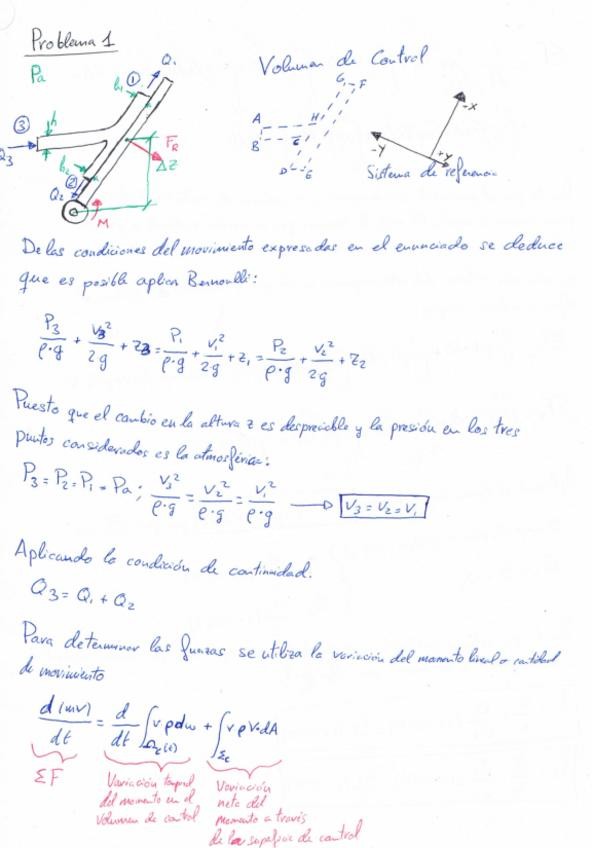 Problema 1
Pa
Q₁
①
b₁
③
h
Q₃
F_R
ΔZ
b₂
②
Q₂
M
Volumen de Control
G
F
A
H
B
C
D
E
-X
-Y
+Y
Sistema de referencia
De las condiciones del movimiento expresadas en el enunciado se deduce
que es posible aplicar Bernoulli:
P₃/(ρ·g) + V₃²/2g + Z₃ = P₁/(ρ·g) + V₁²/2g + Z₁ = P₂/(ρ·g) + V₂²/2g + Z₂
Puesto que el cambio en la altura z es despreciable y la presión en los tres
puntos considerados es la atmosférica:
P₃ = P₂ = P₁ = Pa ; V₃²/(ρ·g) = V₂²/(ρ·g) = V₁²/(ρ·g) → V₃ = V₂ = V₁
Aplicando la condición de continuidad.
Q₃ = Q₁ + Q₂
Para determinar las fuerzas se utiliza la variación del momento lineal o cantidad
de movimiento
d(mv)/dt = d/dt ∫ v ρ dω + ∫ v ρ V·dA
Ωc(t)
Σc
ΣF
Variación temporal
del momento en el
volumen de control
Variación
neta del
momento a través
de la superficie de control